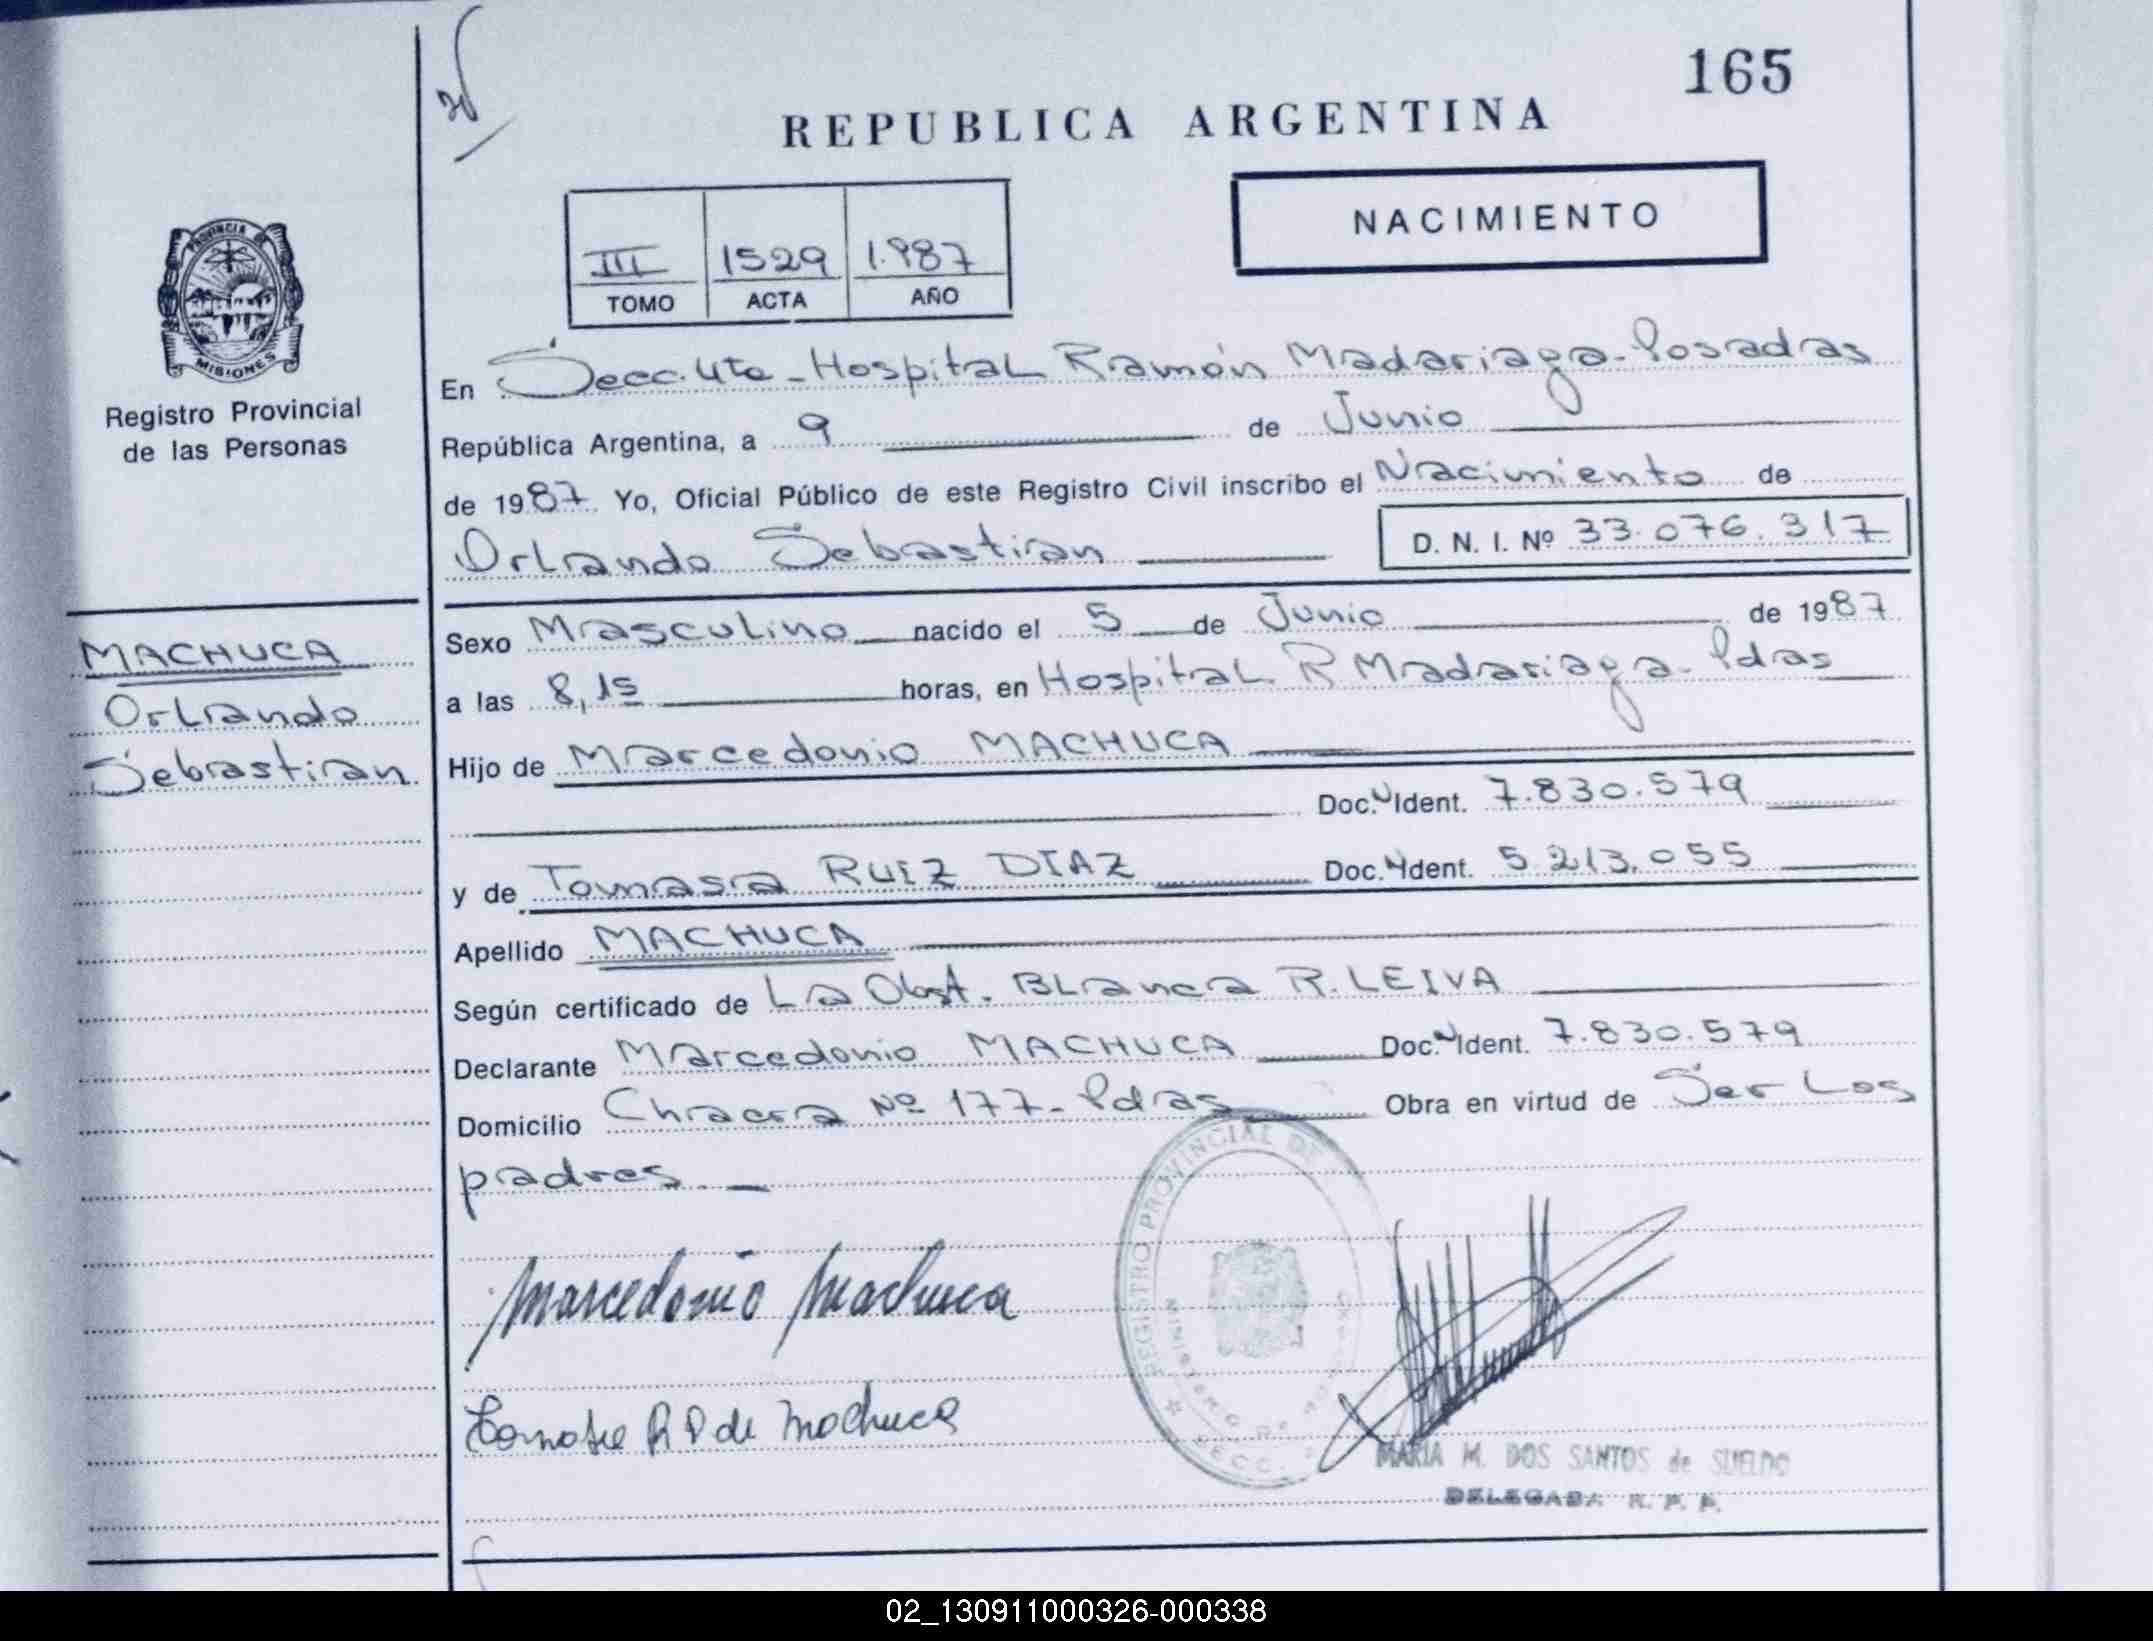 165
REPUBLICA ARGENTINA
NACIMIENTO
III 1529 1.987
TOMO ACTA AÑO
PROVINCIA DE
MISIONES
Registro Provincial
de las Personas
En Secc. 4ta - Hospital Ramón Madariaga - Posadas
República Argentina, a 9 de Junio
de 1987 Yo, Oficial Público de este Registro Civil inscribo el Nacimiento de
Orlando Sebastian D. N. I. Nº 33.076.317
MACHUCA
Orlando
Sebastian.
Sexo Masculino nacido el 5 de Junio de 1987
a las 8,15 horas, en Hospital R Madariaga - Pdas
Hijo de Marcedonio MACHUCA
Doc. N Ident. 7.830.579
y de Tomasa RUIZ DIAZ Doc. N Ident. 5.213.055
Apellido MACHUCA
Según certificado de La Obst. Blanca R. LEIVA
Declarante Marcedonio MACHUCA Doc. N Ident. 7.830.579
Domicilio Chacra Nº 177 - Pdas Obra en virtud de Ser Los
padres. —
REGISTRO PROVINCIAL DE
MINISTERIO DE
SECC.
Marcedonio Machuca
Tomasa R D de Machuca
MARIA M. DOS SANTOS de SUELDO
DELEGADA R. P. P.
02_130911000326-000338